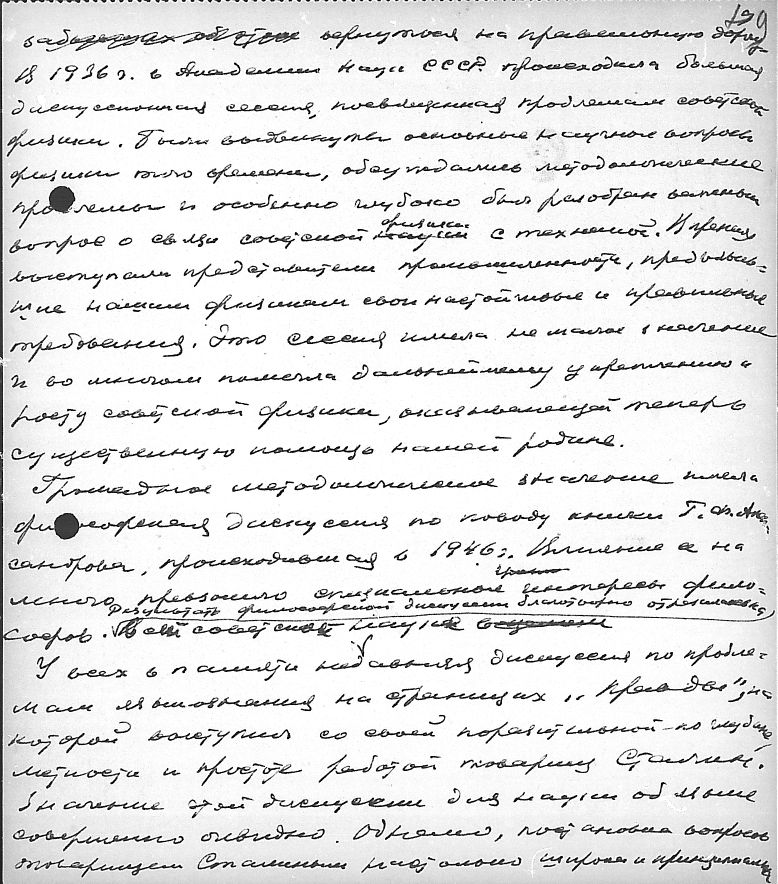 139
вернуться на правильную дорогу.
В 1936 г. в Академии Наук СССР происходила большая
дискуссионная сессия, посвященная проблемам советской
физики. Были выдвинуты основные научные вопросы
физики того времени, обсуждались методологические
проблемы и особенно глубоко был разобран важный
вопрос о связи советской науки физики с техникой. В прениях
выступали представители промышленности, предъявив-
шие нашим физикам свои настойчивые и правильные
требования. Эта сессия имела не малое значение
и во многом помогла дальнейшему укреплению и
росту советской физики, оказывающей теперь
существенную помощь нашей родине.
Громадное методологическое значение имела
философская дискуссия по поводу книги Г. Ф. Алек-
сандрова, происходившая в 1946 г. Влияние ее на
много превзошло специальные интересы фило-
Результаты философской дискуссии благотворно отразились на
софов. всей советской науке в целом
У всех в памяти недавняя дискуссия по пробле-
мам языкознания на страницах „Правды“, на
которой выступил со своей поразительной по глубине,
меткости и простоте работой товарищ Сталин.
Значение этой дискуссии для науки об языке
совершенно очевидно. Однако, постановка вопросов
товарищем Сталиным настолько широка и принципиальна